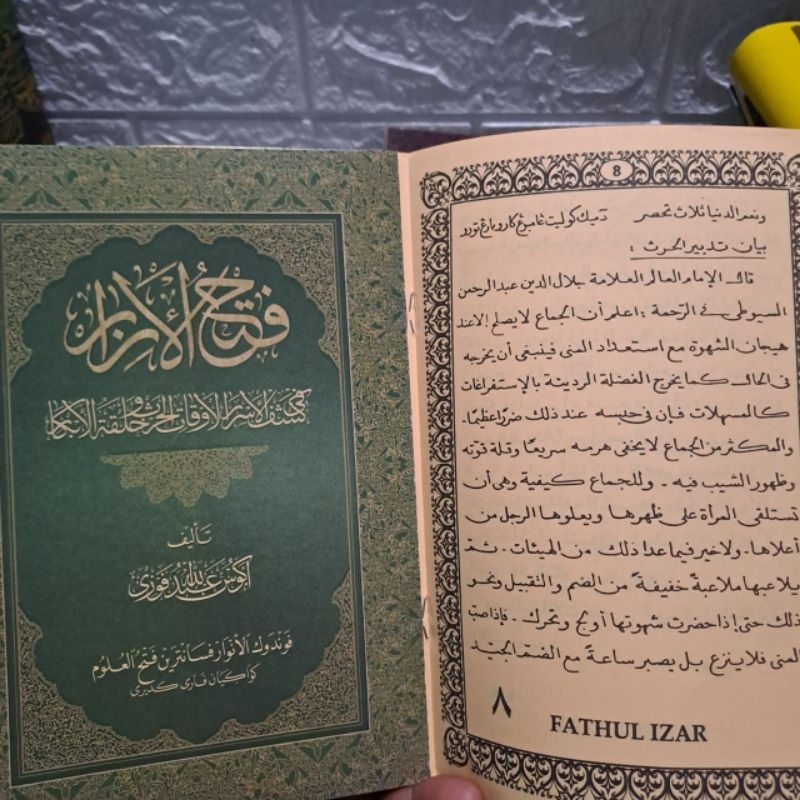 فتح الإزار
في كشف الأسرار لأوقات الحرث وخلقة الأبكار
تأليف
اكوس عبد الله فوزي
فوندوك الأنوار فسانترين فتح العلوم
كواكيان فاري كديري
8
ونعم الدنيا ثلاث تحصر
بيان تدبير الحرث :
قال الإمام العالم العلامة جلال الدين عبد الرحمن
السيوطي في الرحمة : اعلم أن الجماع لا يصلح إلا عند
هيجان الشهوة مع استعداد المنى فينبغى أن يخرجه
فى الحال كما يخرج الفضلة الرديئة بالإستفراغات
كالمسهلات فإن في حبسه عند ذلك ضررا عظيما .
والمكثر من الجماع لا يخفى هرمه سريعا وقلة قوته
وظهور الشيب فيه . وللجماع كيفية وهى أن
تستلقى المرأة على ظهرها ويعلوها الرجل من
أعلاها . ولا خير فيما عدا ذلك من الهيئات . ثم
يلاعبها ملاعبة خفيفة من الضم والتقبيل ونحو
ذلك حتى إذا حضرت شهوتها أولج وتحرك . فإذا صب
المنى فلا ينزع بل يصبر ساعة مع الضم الجيد
٨
FATHUL IZAR